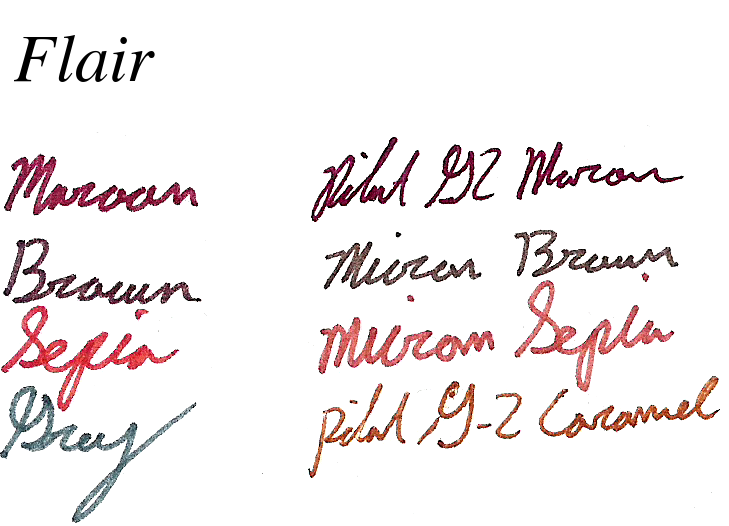 Flair
Maroon
Pilot G2 Maroon
Brown
Micron Brown
Sepia
Micron Sepia
Gray
Pilot G-2 Caramel